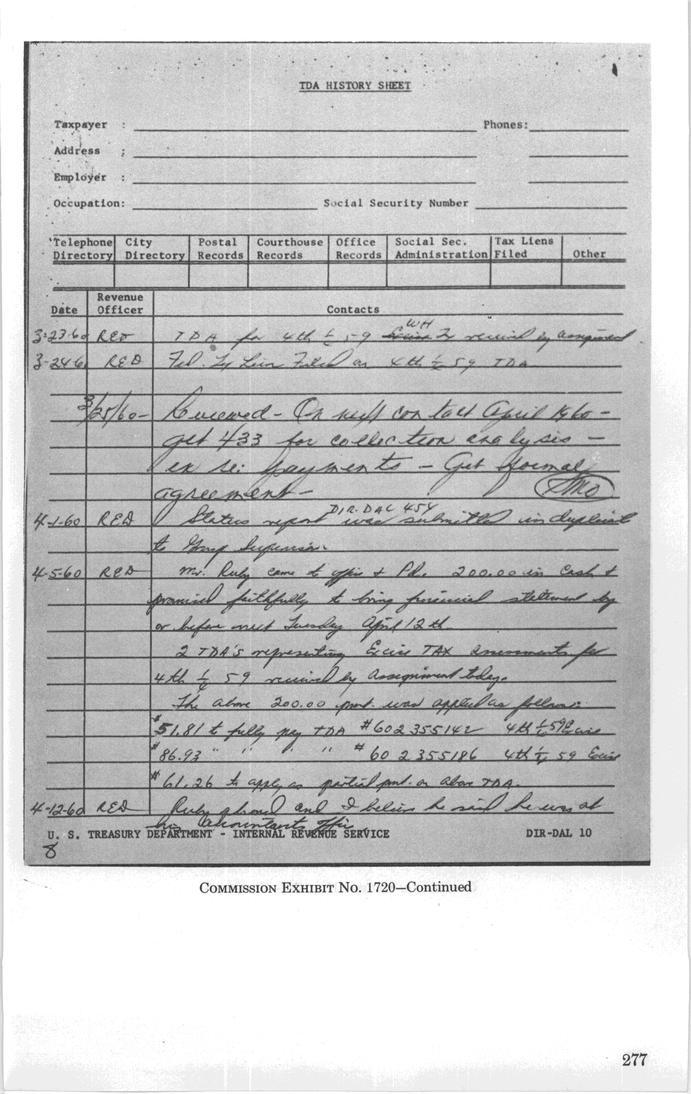 TDA HISTORY SHEET
Taxpayer : Phones:
Address :
Employer :
Occupation: Social Security Number
Telephone Directory City Directory Postal Records Courthouse Records Office Records Social Sec. Administration Tax Liens Filed Other
Date Revenue Officer Contacts
WH
3-23-60 RED TDA for 4th ¼ 59 Excise Tx received by assignment
3-24-6 RED Fed. Tx Lien Filed on 4th ¼ 59 TDA
3/25/60- Reviewed - On next contact April 1960 -
get 433 for collection analysis -
in re: payments - Get formal
agreement -
DIR-DAL 454
4-1-60 RED Status report was submitted in duplicate
to Group Supervisor.
4-5-60 RED Mr. Ruby came to office & Pd. 200.00 in cash &
promised faithfully to bring financial statement by
or before next Tuesday April 12th
2 TDA's representing Excise TAX assessments for
4th ¼ 59 received by assignment today.
The above 200.00 pmt. was applied as follows:
$51.81 to fully pay TDA #602355142 4th ¼ 59 Excise
$86.93 " " " " #602355186 4th ¼ 59 Excise
$61.26 to apply as partial pmt. on above TDA.
4-12-60 RED Ruby phoned and I believe he said he was at
his accountants office
U. S. TREASURY DEPARTMENT - INTERNAL REVENUE SERVICE DIR-DAL 10
8
COMMISSION EXHIBIT NO. 1720—Continued
277